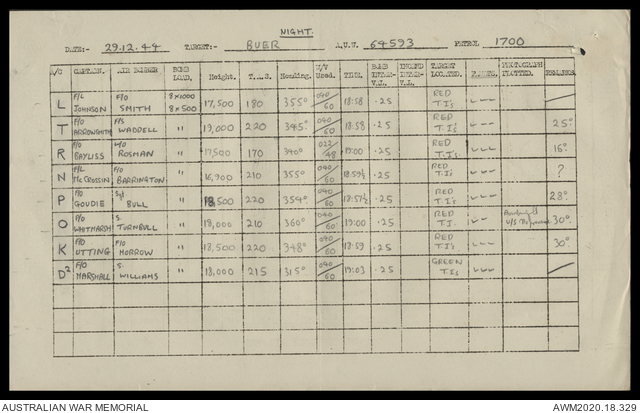 NIGHT.
DATE:- 29.12.44 TARGET:- BUER A.U.W. 64593 PETROL 1700
A/C CAPTAIN. AIR BOMBER BOMB LOAD. Height. T.A.S. Heading. W/V Used. TIME. BOMB INTER- VAL. TARGET LOCATED. PHOTOGRAPH PLOTTED. REMARKS
L F/L JOHNSON F/O SMITH 8x1000 8x500 17,500 180 355° 040/60 18:58 .25 RED T.I's
T F/O F/S WADDELL " 19,000 220 345° 040/60 18:58 .25 RED T.I's 25°
R F/O BAYLISS ROSMAN " 17,500 170 340° 022/48 19:00 .25 RED T.I's 16°
N F/L McCROSSIN F/O BARRINGTON " 16,900 210 355° 040/60 18:59½ .25 RED T.I's ?
P F/O GOUDIE BULL " 18,500 220 354° 040/60 18:57½ .25 RED T.I's 28°
O F/O S. TURNBULL " 18,000 210 360° 040/60 19:00 .25 RED T.I. 30°
K F/O UTTING F/O MORROW " 18,500 220 348° 040/60 18:59 .25 RED T.I's 30°
D² F/O MARSHALL S. WILLIAMS " 18,000 215 315° 040/60 19:03 .25 GREEN T.I's
AUSTRALIAN WAR MEMORIAL AWM2020.18.329